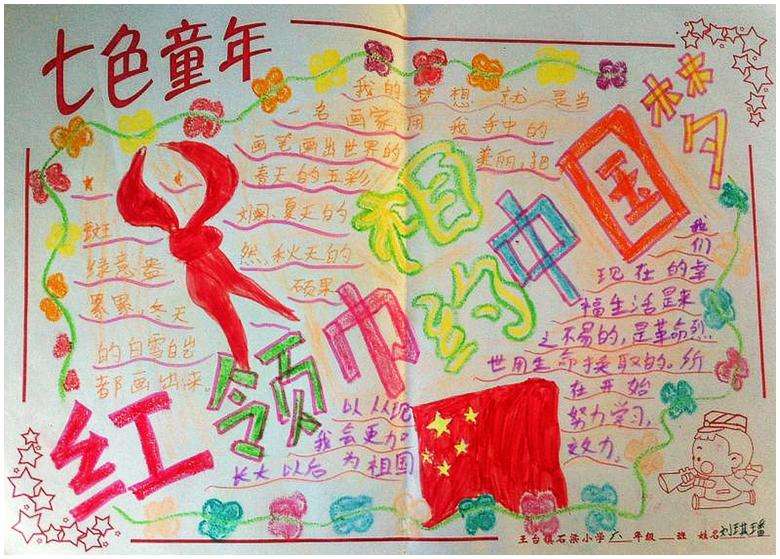 七色童年
红领巾
相约
中国梦
我的梦想就是当
一名画家用我手中的
画笔画出世界的美丽,把
春天的五彩
斑斓、夏天的
绿意盎然,秋天的
硕果
累累,冬天
的白雪皑皑
都画出来。
我们
现在的幸
福生活是来
之不易的,是革命烈
世用生命换取的。所
以从现在开始
我会更加努力学习,
长大以后为祖国效力。
王台镇石梁小学六年级 班 姓名刘琪瑶